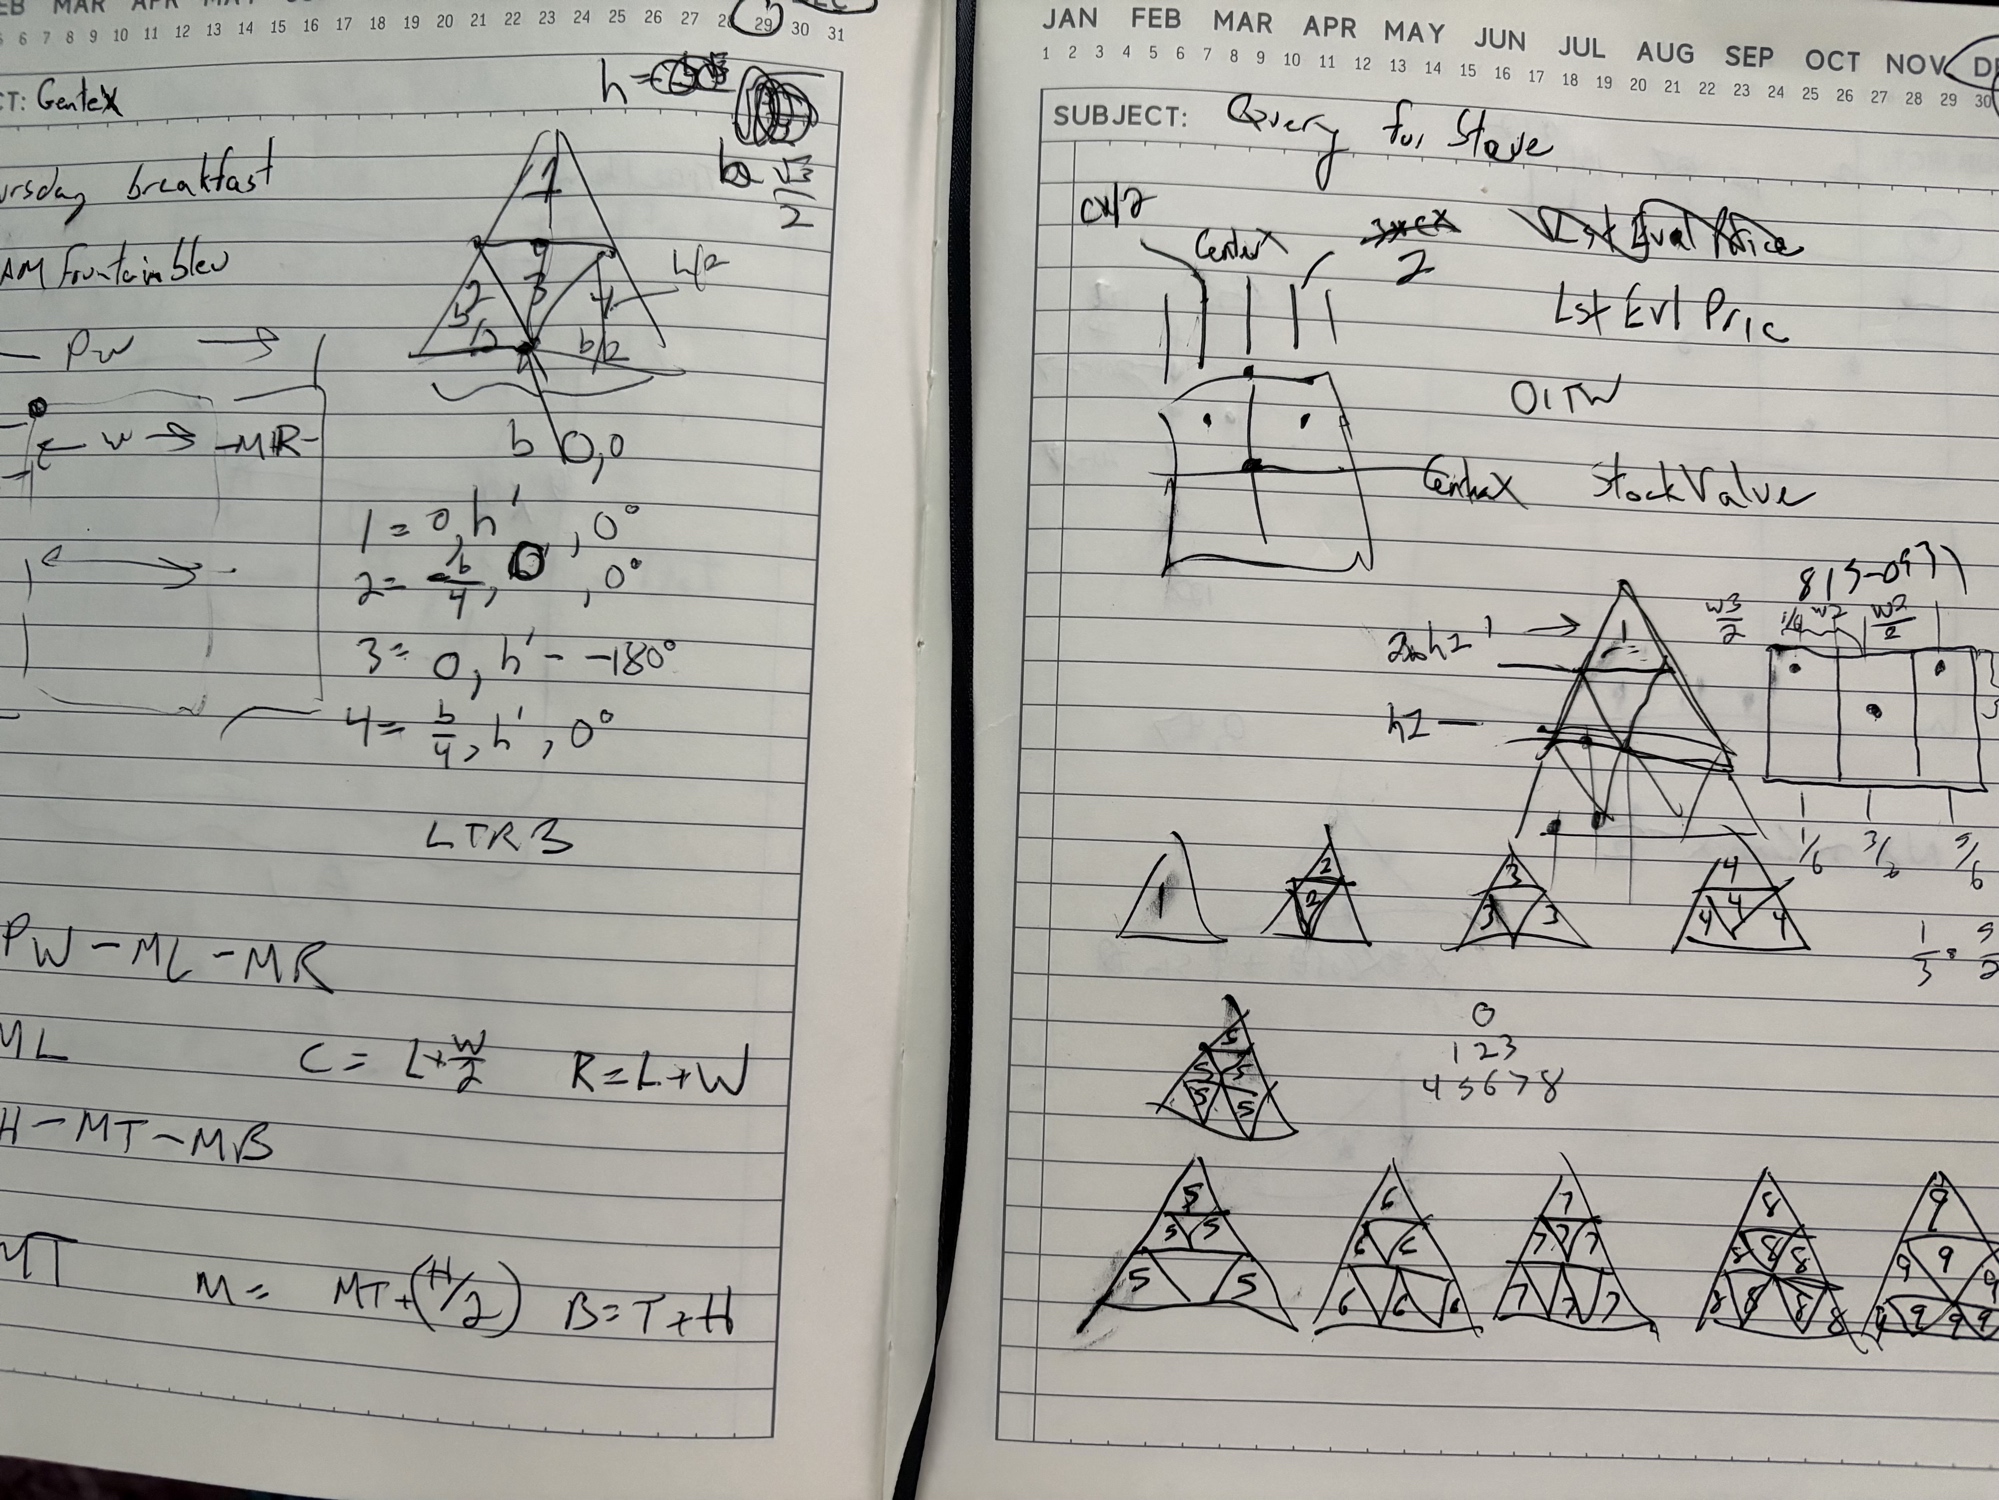 MAR APR MAY
6 7 8 9 10 11 12 13 14 15 16 17 18 19 20 21 22 23 24 25 26 27 28 29 30 31
CT: Gentex
h =
ursday breakfast
b √3
2
1
AM Fountainbleu
h/2
2 3 4
b/2
PW
b 0,0
W MR
1 = 0, h', 0°
2 = -b/4, 0, 0°
3 = 0, h' - -180°
4 = b/4, h', 0°
LTR 3
PW - ML - MR
ML C = L + W/2 R = L + W
H - MT - MB
MT M = MT + (H/2) B = T + H
JAN FEB MAR APR MAY JUN JUL AUG SEP OCT NOV
1 2 3 4 5 6 7 8 9 10 11 12 13 14 15 16 17 18 19 20 21 22 23 24 25 26 27 28 29 30
SUBJECT: Query for Steve
CX/2
CenterX
2
Lst Eval Price
Lst Evl Pric
OITW
CenterX Stock Value
W3/2 W2/2
1
h2
1/6 3/6 5/6
1
2 2
3 3 3
4 4 4 4
1/3
5 5 5 5 5
0
1 2 3
4 5 6 7 8
5 5 5 5 5
6 6 6 6 6 6
7 7 7 7 7 7 7
8 8 8 8 8 8 8 8
9 9 9 9 9 9 9 9